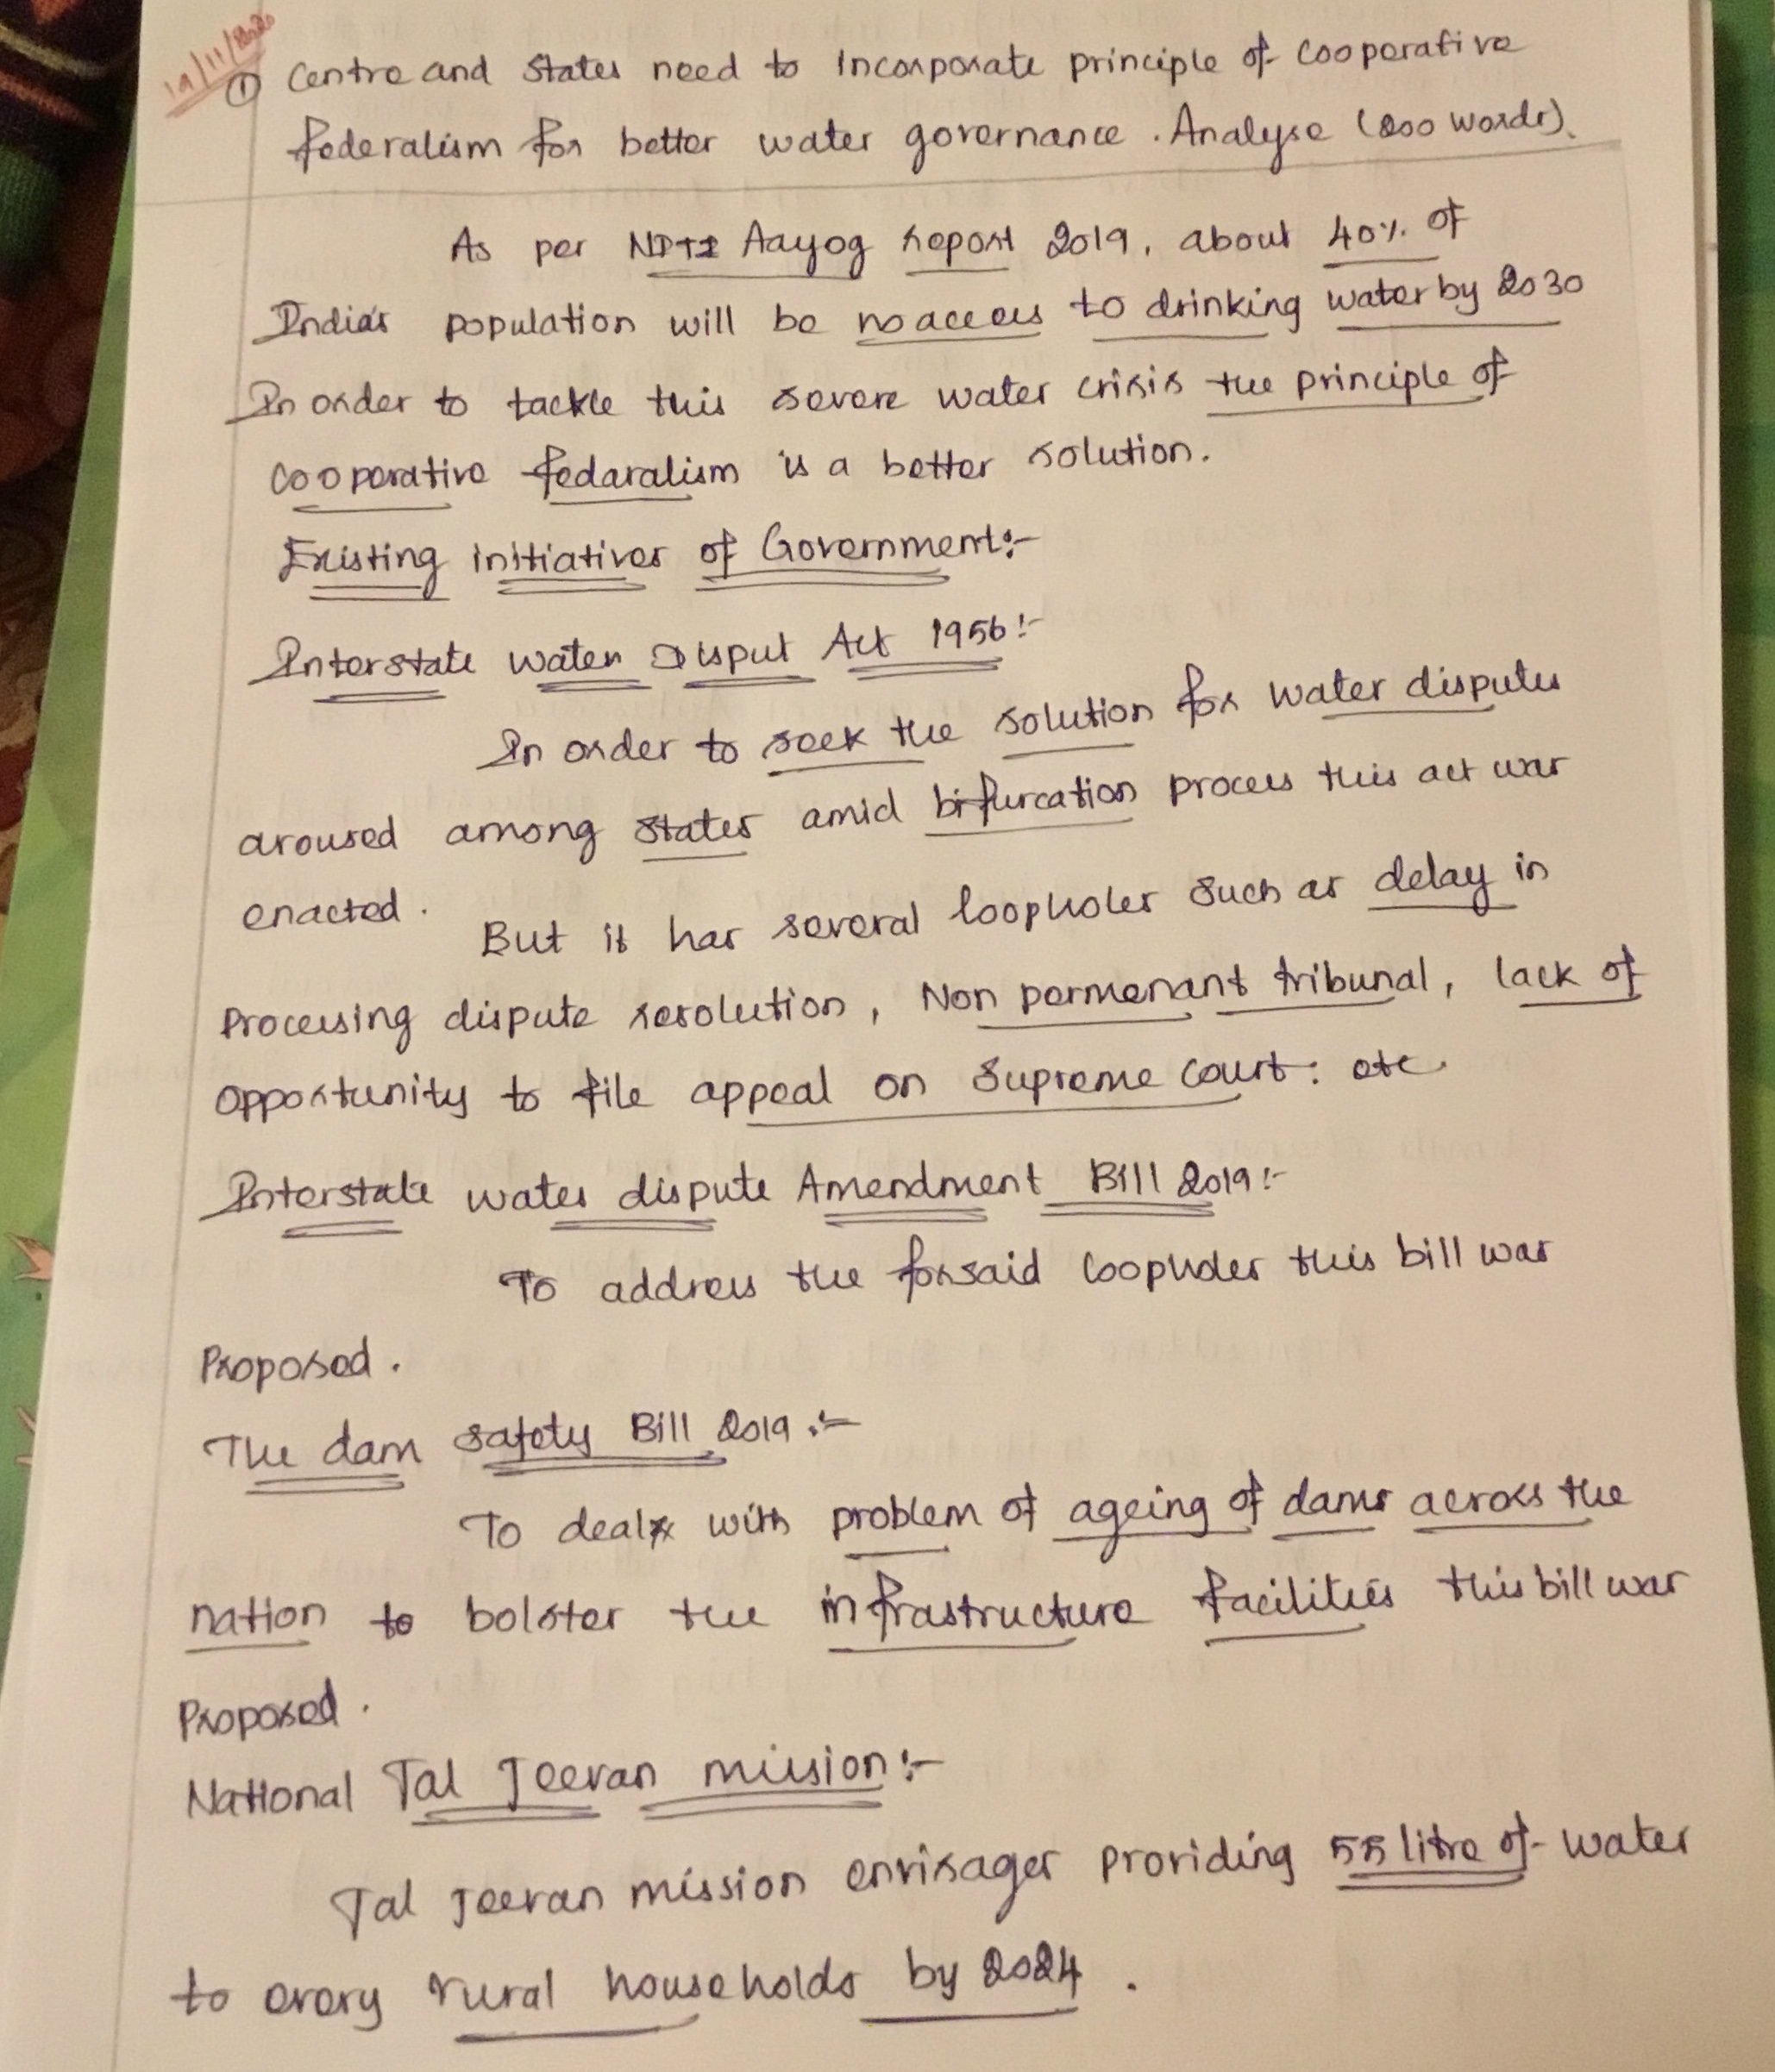 19/11/2020
① Centre and States need to incorporate principle of cooperative
federalism for better water governance. Analyse (200 words).
As per NITI Aayog report 2019, about 40% of
India's population will be no access to drinking water by 2030
In order to tackle this severe water crisis the principle of
cooperative fedaralism is a better solution.
Existing initiatives of Government:-
Interstate water Disput Act 1956:-
In order to seek the solution for water disputes
aroused among states amid bifurcation process this act was
enacted.
But it has several loopholes such as delay in
Processing dispute resolution, Non permenant tribunal, lack of
opportunity to file appeal on Supreme court. etc.
Interstate water dispute Amendment Bill 2019:-
To address the forsaid loopholes this bill was
Proposed.
The dam safety Bill 2019:-
To deal with problem of ageing of dams across the
nation to bolster the infrastructure facilities this bill was
Proposed.
National Jal Jeevan mission:-
Jal Jeevan mission envisages providing 55 litre of water
to every rural households by 2024.